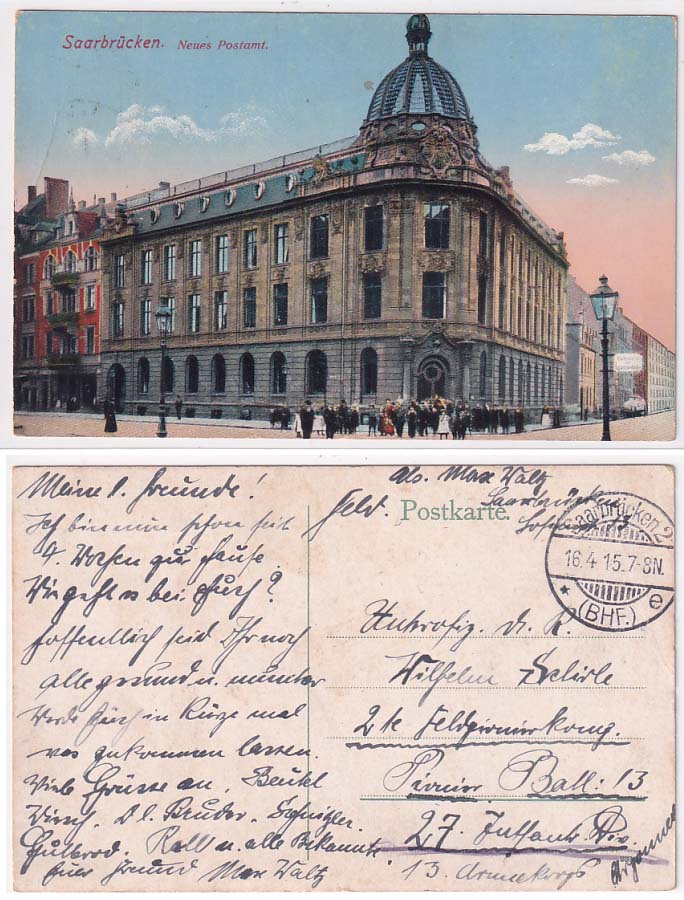 Saarbrücken. Neues Postamt.
Meine l. Freunde!
Ich bin nun schon seit
4. Wochen zur Hause.
Wie geht es bei Euch?
Hoffentlich seid Ihr noch
alle gesund u. munter
Werde Euch in Kürze mal
was zukommen lassen.
Viele Grüsse an, Beukel
Wirsch. D. l. Bruder.
Roll u. alle Bekannte
Euer Freund Max Waltz
Abs. Max Waltz
Saarbrücken
Feld.
Postkarte.
Saarbrücken 2
16.4 15.7-8N.
* (BHF.) e
Unteroffiz. d. R.
Wilhelm
2te Feldpionierkomp.
Pionier Batl: 13
27. Infant. Div.
13. Armeekorps
Argonnen